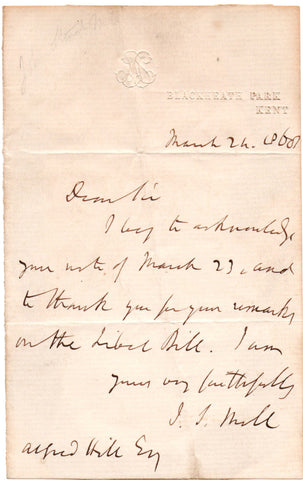 BLACKHEATH PARK
KENT
March 24. 1868
Dear Sir
I beg to acknowledge
your note of March 23, and
to thank you for your remarks
on the Libel Bill. I am
yours very faithfully
J. S. Mill
Alfred Hill Esq